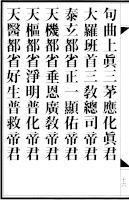 句曲上眞三茅應化眞君
大羅班首三教總司帝君
泰玄都省正一顯佑帝君
天機都省垂恩廣救帝君
天樞都省淨明普化帝君
天醫都省好生普救帝君